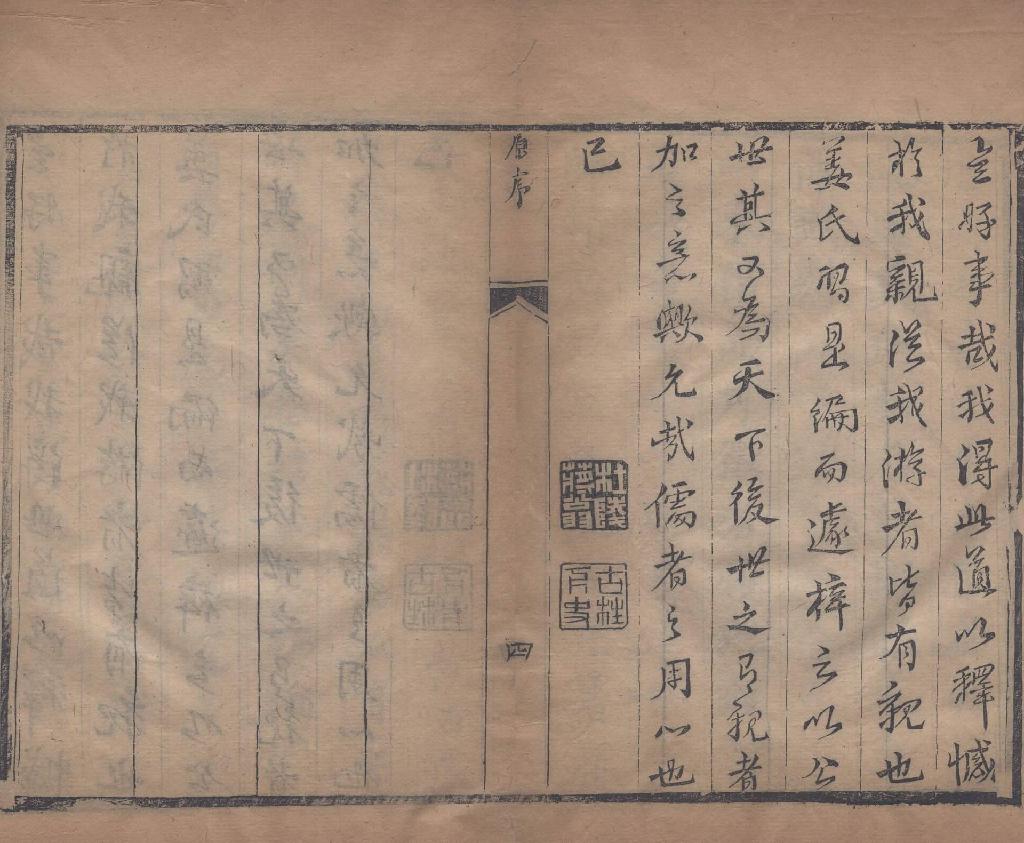 豈好事哉我得此道以釋憾
於我親從我游者皆有親也
姜氏習是編而遽梓之以公
世其又為天下後世之有親者
加之意歟允哉儒者之用心也
已
杜陵
蔣翁
古柱
下史
原序
四